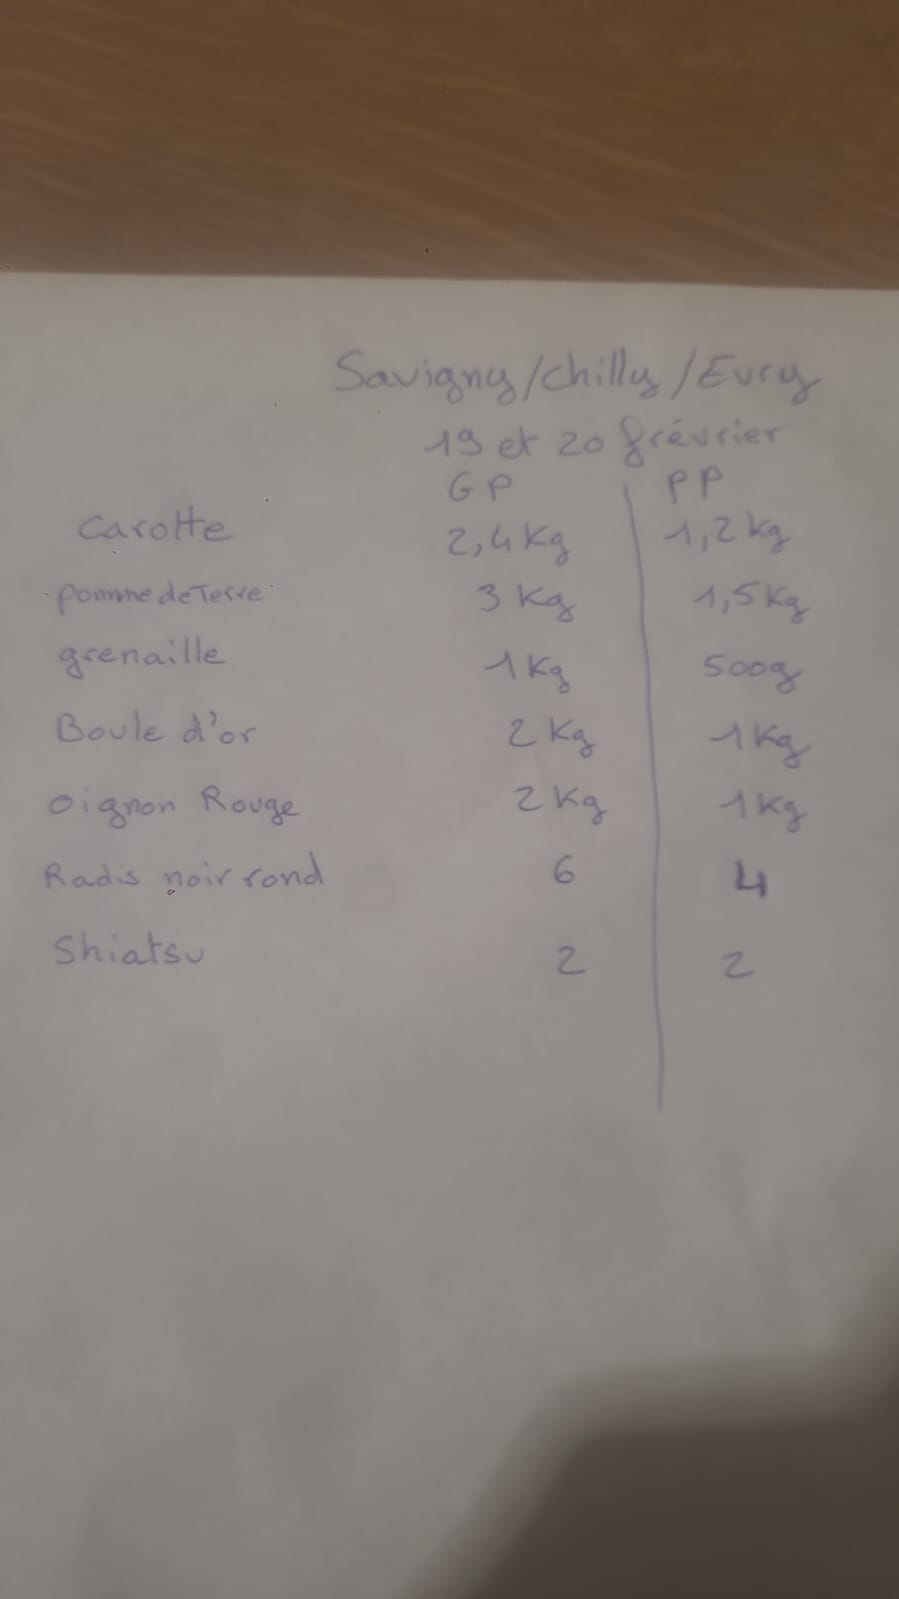 Savigny/Chilly/Evry
19 et 20 frévrier
GP PP
Carotte 2,4Kg 1,2kg
pomme de Terre 3 Kg 1,5Kg
grenaille 1Kg 500g
Boule d'or 2 Kg 1Kg
oignon Rouge 2Kg 1Kg
Radis noir rond 6 4
Shiatsu 2 2